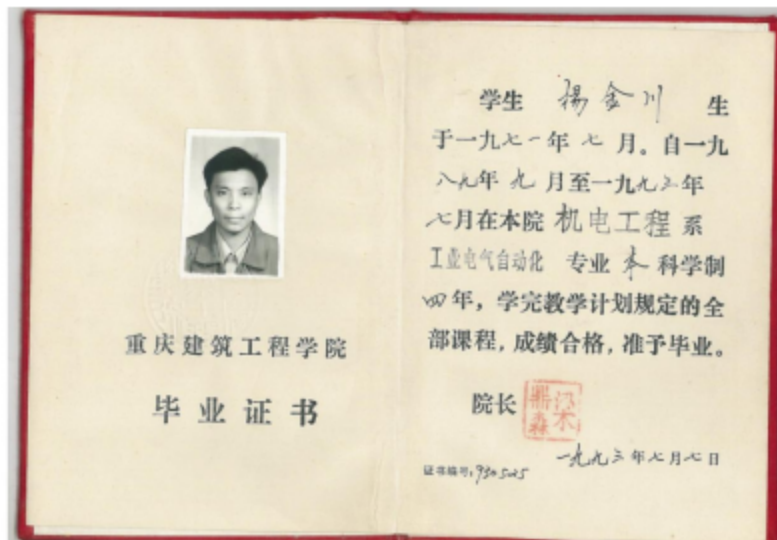 重庆建筑工程学院
毕业证书
学生 楊金川 生
于一九七一年七月。自一九
八九年九月至一九九三年
七月在本院机电工程系
工业电气自动化 专业本科学制
四年，学完教学计划规定的全
部课程，成绩合格，准予毕业。
院长 梁鼎森
一九九三年七月七日
证书编号：